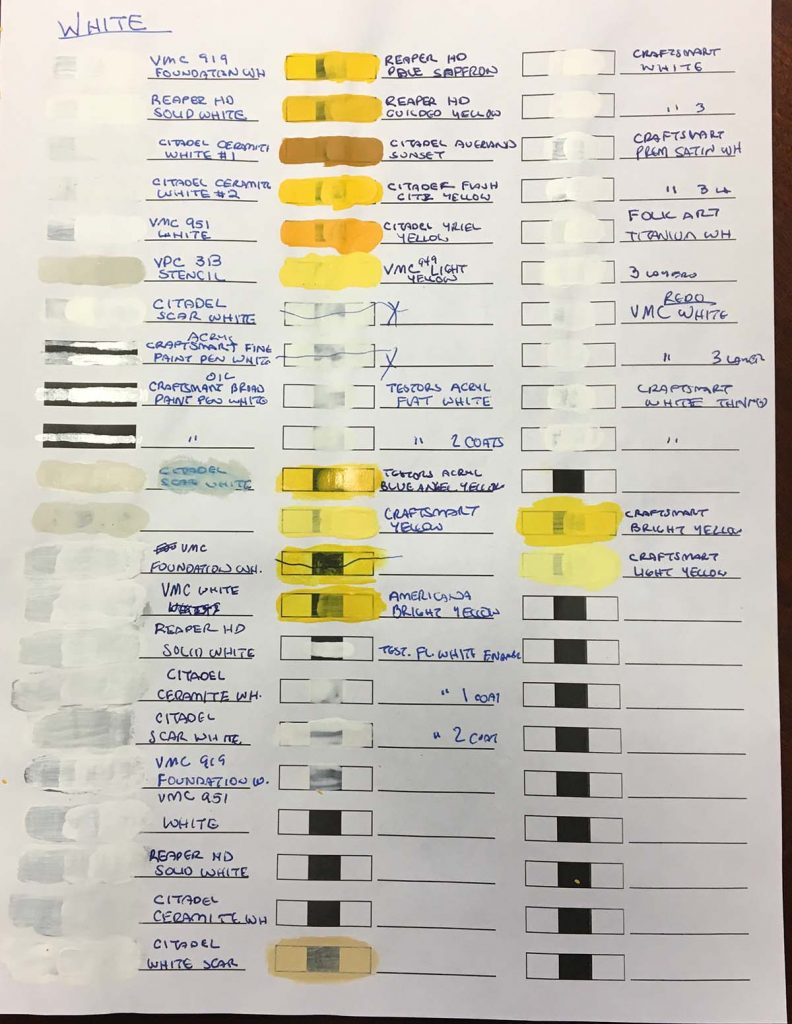 WHITE
VMC 919
FOUNDATION WH
REAPER HD
SOLID WHITE
CITADEL CERAMITE
WHITE #1
CITADEL CERAMITE
WHITE #2
VMC 951
WHITE
VPC 313
STENCIL
CITADEL
SCAR WHITE
ACRYL
CRAFTSMART FINE
PAINT PEN WHITE
OIL
CRAFTSMART BROAD
PAINT PEN WHITE
"
CITADEL
SCAR WHITE
VMC
FOUNDATION WH.
VMC WHITE
REAPER HD
SOLID WHITE
CITADEL
CERAMITE WH.
CITADEL
SCAR WHITE
VMC 919
FOUNDATION W.
VMC 951
WHITE
REAPER HD
SOLID WHITE
CITADEL
CERAMITE WH
CITADEL
WHITE SCAR
REAPER HD
PALE SAFFRON
REAPER HD
GUILDED YELLOW
CITADEL AVERLAND
SUNSET
CITADEL FLASH
GITZ YELLOW
CITADEL YRIEL
YELLOW
VMC 949 LIGHT
YELLOW
X
X
TESTORS ACRYL
FLAT WHITE
" 2 COATS
TESTORS ACRYL
BLUE ANGEL YELLOW
CRAFTSMART
YELLOW
AMERICANA
BRIGHT YELLOW
TEST. FL. WHITE ENAMEL
" 1 COAT
" 2 COAT
CRAFTSMART
WHITE
" 3
CRAFTSMART
PREM SATIN WH
" 3 L
FOLK ART
TITANIUM WH
3 LAYERS
REDO
VMC WHITE
" 3 LAYER
CRAFTSMART
WHITE THINNED
"
CRAFTSMART
BRIGHT YELLOW
CRAFTSMART
LIGHT YELLOW